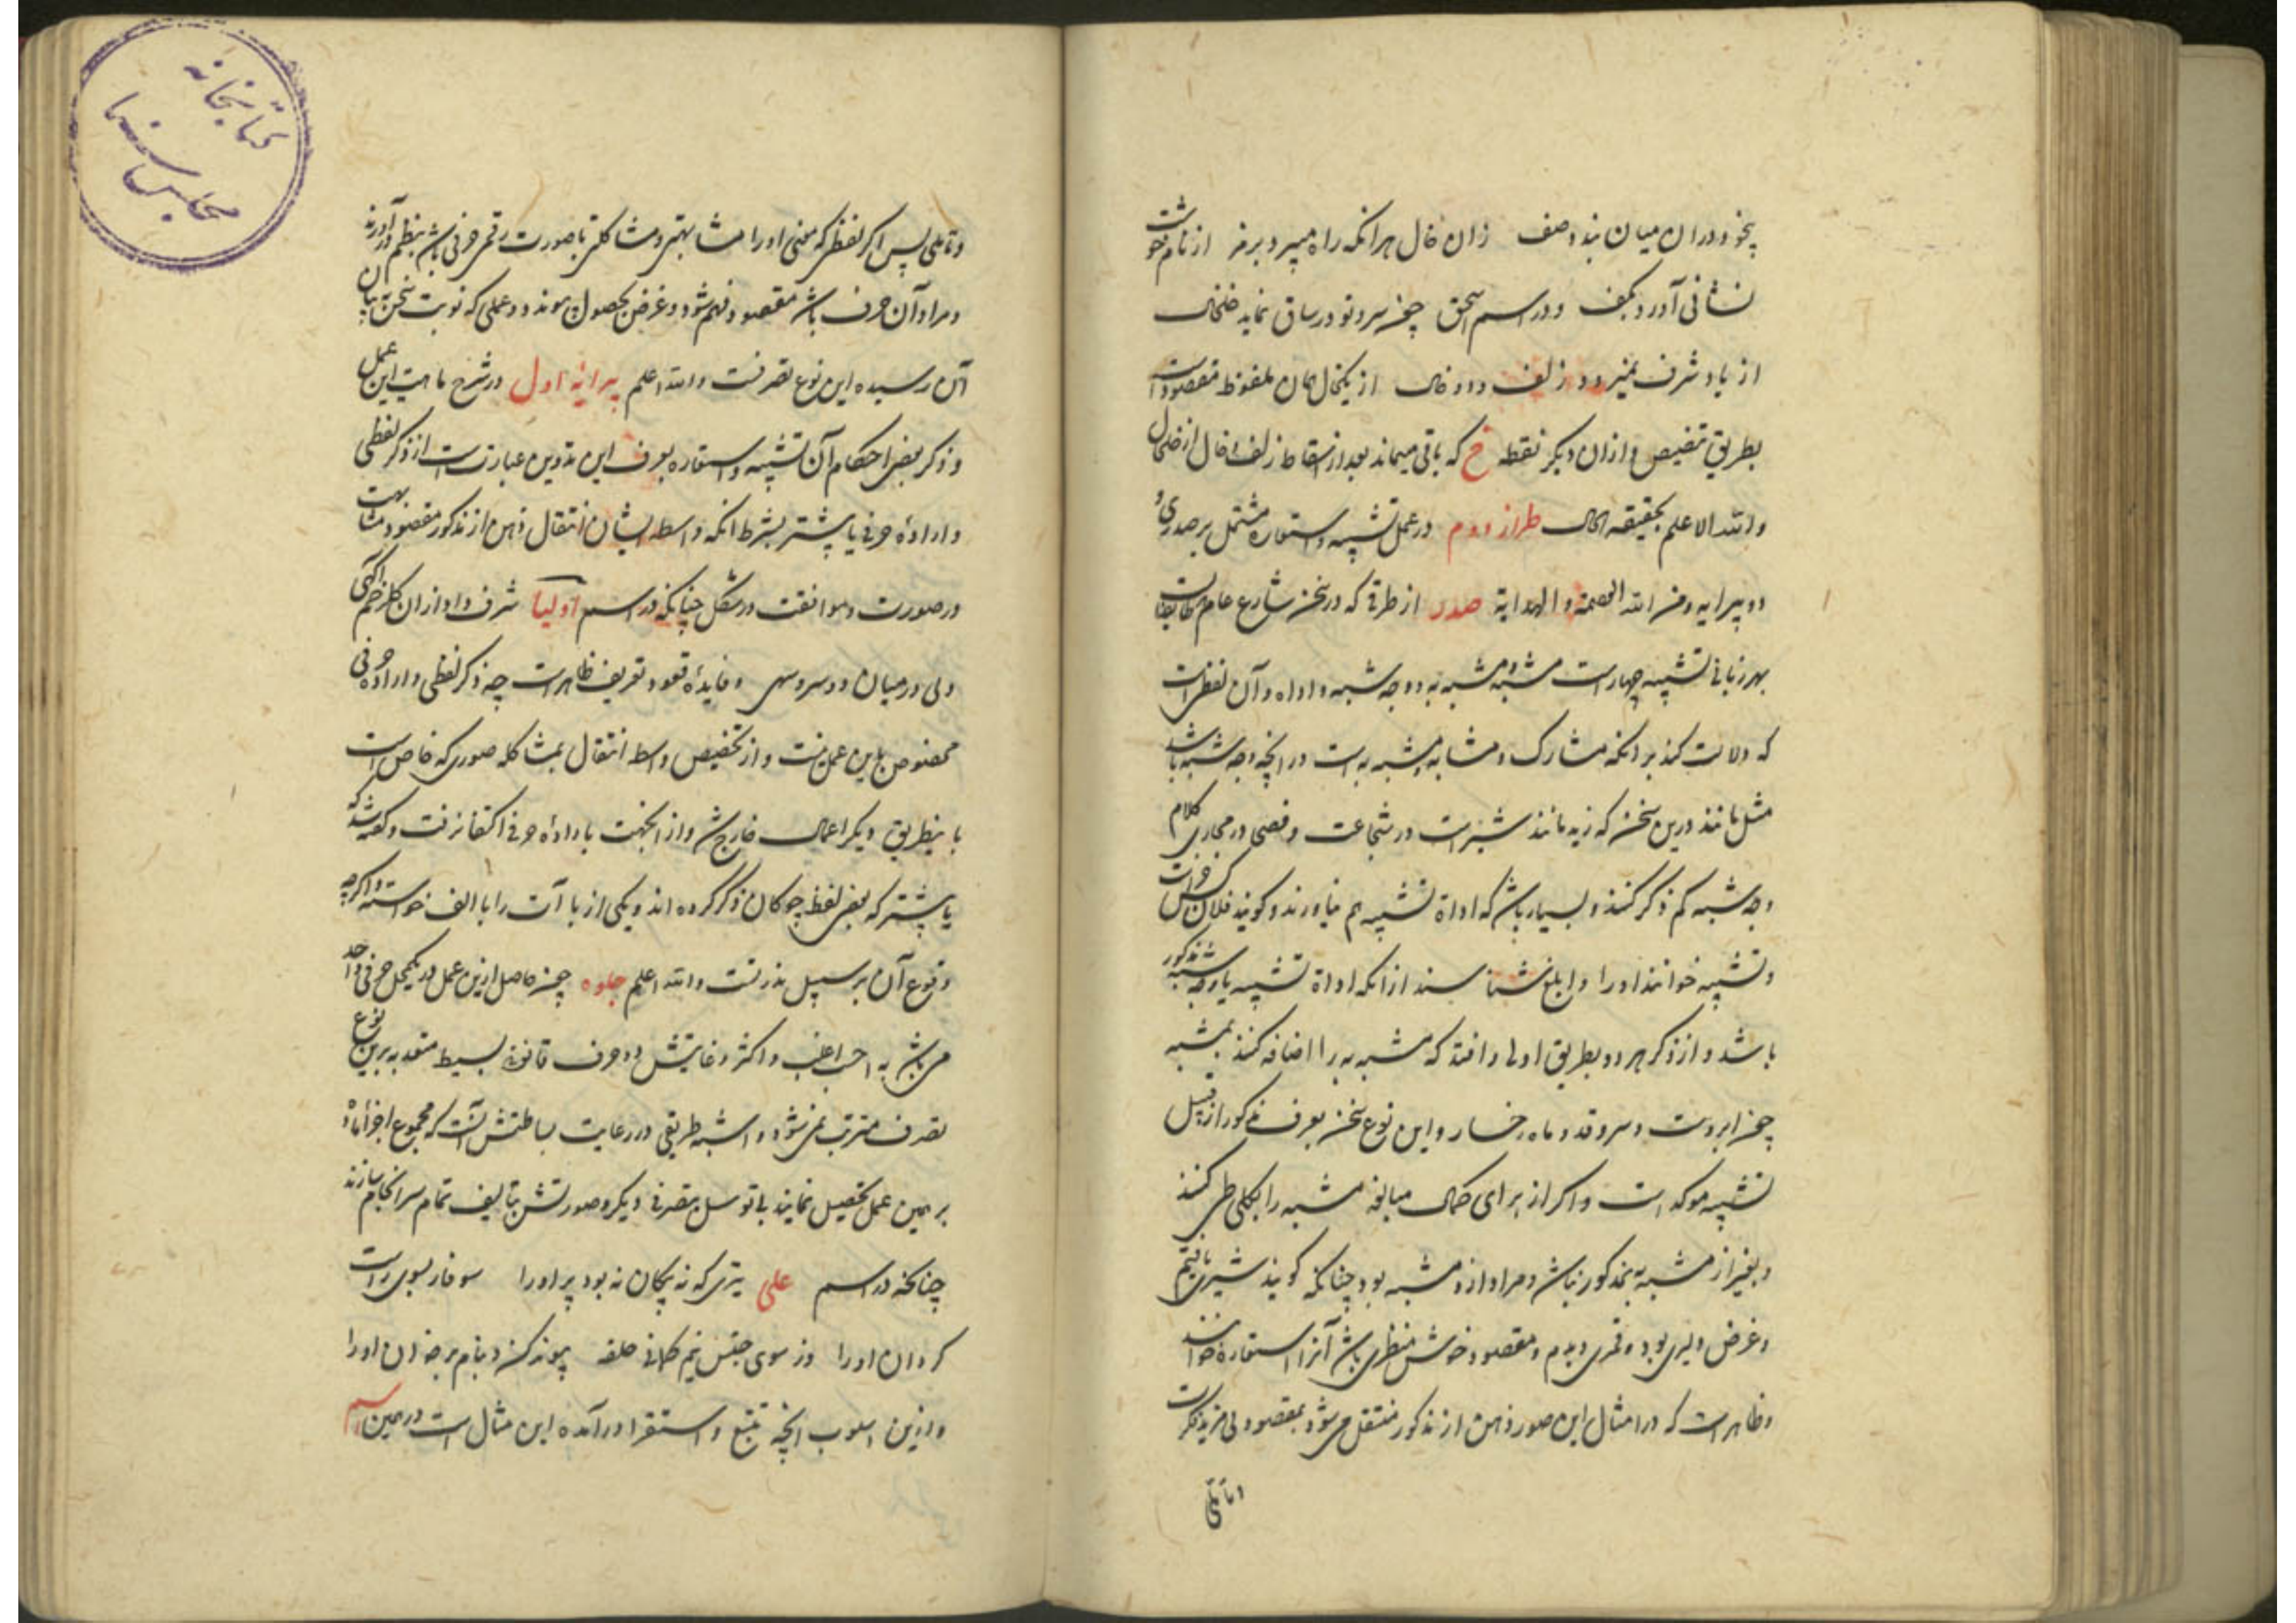 بخود دران میان بند وصف زان خال هر انکه راه میبرد برمز از نام خوشت
نشانی آورد بکف و در اسم اسحق چون سر و تو در ساق نماید خلخال
از باد شرف نمیرود زلف و دو خال از یکخال همان ملفوظ مقصودست
بطریق تنصیص و ازان دیگر نقطه خ که باقی میماند بعد از اسقاط زلف و خال از خلخال
والله الاعلم بحقیقة الحال طراز دوم در عمل تشبیه و استعاره مشتمل بر صدری و
دو پیرایه و من الله العصمة و الهدایة صدر از طرقی که در سخن شارع عام
بهر زبانی تشبیه چهارست مشبه و مشبه به و وجه شبه و اداه و آن لفظیست
که دلالت کند بر انکه مشارک و مشابه مشبه به است در انچه وجه شبه باشد
مثل مانند درین سخن که زید مانند شیرست در شجاعت و فصحی در مجاری کلام
وجه شبه کم ذکر کنند و بسیار باشد که اداة تشبیه هم نیاورند و کویند فلان کس
و تشبیه خوانند او را و ابلغ شناسند ازانکه اداة تشبیه یا وجه شبه مذکور
باشد و از ذکر هر دو بطریق اولی و افتد که مشبه به را اضافه کنند بمشبه
چون ابروست و سرو قد و ماه رخسار و این نوع سخن بعرف مذکور از قبیل
تشبیه موکد است و اکر از برای کمال مبالغه مشبه را بکلی طی کنند
و بغیر از مشبه به مذکور نباشد و مراد ازو مشبه بود چنانکه کویند شیری یافتیم
و غرض دلیری بود و قمری دیدم و مقصود خوش منظری باشد آنرا استعاره خوانند
و ظاهرست که در امثال این صور ذهن از مذکور منتقل می شود بمقصود بی مزید فکرت
و تاملی پس اکر لفظی که معنی او را مشابهتی و مشاکلتی با صورت رقمی حرفی باشد بنظم درآورند
و مراد آن حرف باشد مقصود فهم شود و غرض بحصول پیوندد و عملی که نوبت سخن به بیان
آن رسیده این نوع تصرفست والله اعلم پیرایه اول در شرح ماهیت این عمل
و ذکر بعضی احکام آن تشبیه و استعاره بعرف این تدوین عبارتست از ذکر لفظی
و اراده حرفی یا بیشتر بشرط انکه واسطه ایشان انتقال ذهن از مذکور بمقصود مشابهت
در صورت و موافقت در شکل چنانکه در اسم اولیا شرف داد ازان کلرخم آکهی
ولی در میان دو سرو سهی و فایده قیود تعریف ظاهرست چه ذکر لفظی و اراده حرفی
مخصوص باین عمل نیست و از تخصیص واسطه انتقال بمشاکله صوری که خاص است
باینطریق دیکر اعمال خارج شد و از انجهت باراده حرفی اکتفا نرفت و کفته شد که
یا بیشتر که بعضی لفظ چوکان ذکر کرده اند و یکی از با آت را با الف خواسته و اکرچه
وقوع آن بر سبیل ندرتست والله اعلم جلوه چون حاصل ازین عمل در یکمحل حرفی واحد
می باشد به حسب اغلب و اکثر و غایتش دو حرف قانونی بسیط معتد به برین نوع
تصرف مترتب نمی شود و اشبه طریقی در رعایت بساطتش آنست که مجموع اجزا ماده
بر همین عمل تحصیل نمایند بی توسل بتصرفی دیکر و صورتش بتالیف تمام سرانجام سازند
چنانکه در اسم علی تیری که نه پیکان نه بود پر او را سوفار بسوی راست
کردان او را وز سوی چپش نیم کمانی حلقه پیوند کن و بنام برخوان او را
و ازین اسلوب انچه تتبع و استقرا درآمده این مثال است در همین اسم
اما تاملی
کتابخانه
مجلس سنا